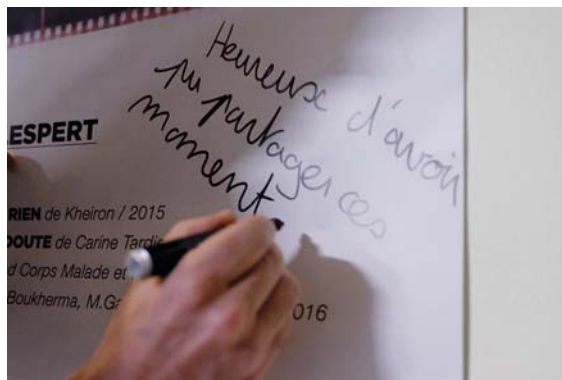 Heureuse d'avoir
pu partager ces
moment
ESPERT
RIEN de Kheiron / 2015
DOUTE de Carine Tardie
d Corps Malade et
Boukherma, M.Ga
016